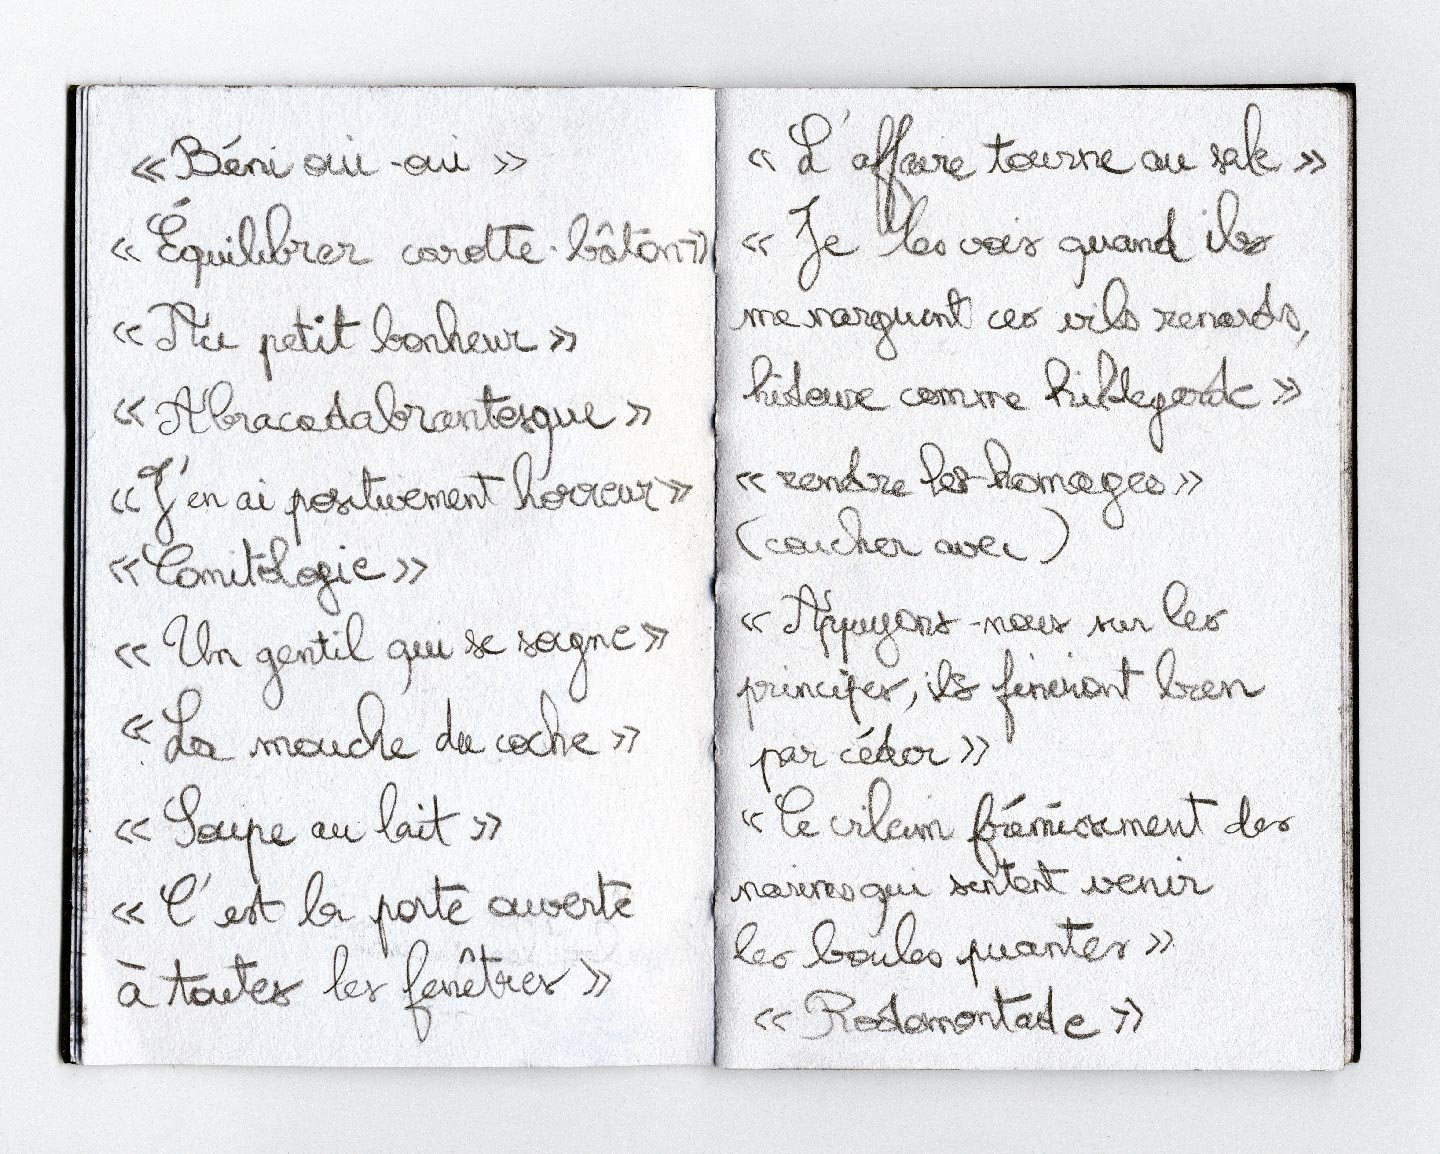 « Béni oui-oui »
« Équilibrer carotte-bâton »
« Au petit bonheur »
« Abracadabrantesque »
« J'en ai positivement horreur »
« Comitologie »
« Un gentil qui se soigne »
« La mouche du coche »
« Soupe au lait »
« C'est la porte ouverte
à toutes les fenêtres »
« L'affaire tourne au sale »
« Je les vois quand ils
me narguent ces vils renards,
histoire comme hildegarde »
« rendre les homages »
(coucher avec)
« Appuyons-nous sur les
principes, ils finiront bien
par céder »
« Ce vilain frémissement des
narines qui sentent venir
les boules puantes »
« Rodomontade »